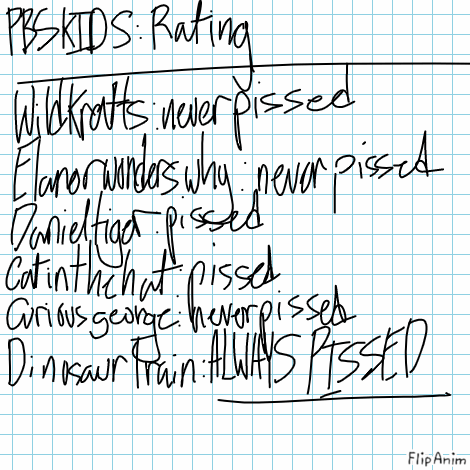 PBSKIDS: Rating
WildKratts: never pissed
Elanor wonders why: never pissed
Daniel tiger: pissed
Catinthehat: pissed
Curious george: never pissed
Dinosaur Train: ALWAYS PISSED
FlipAnim